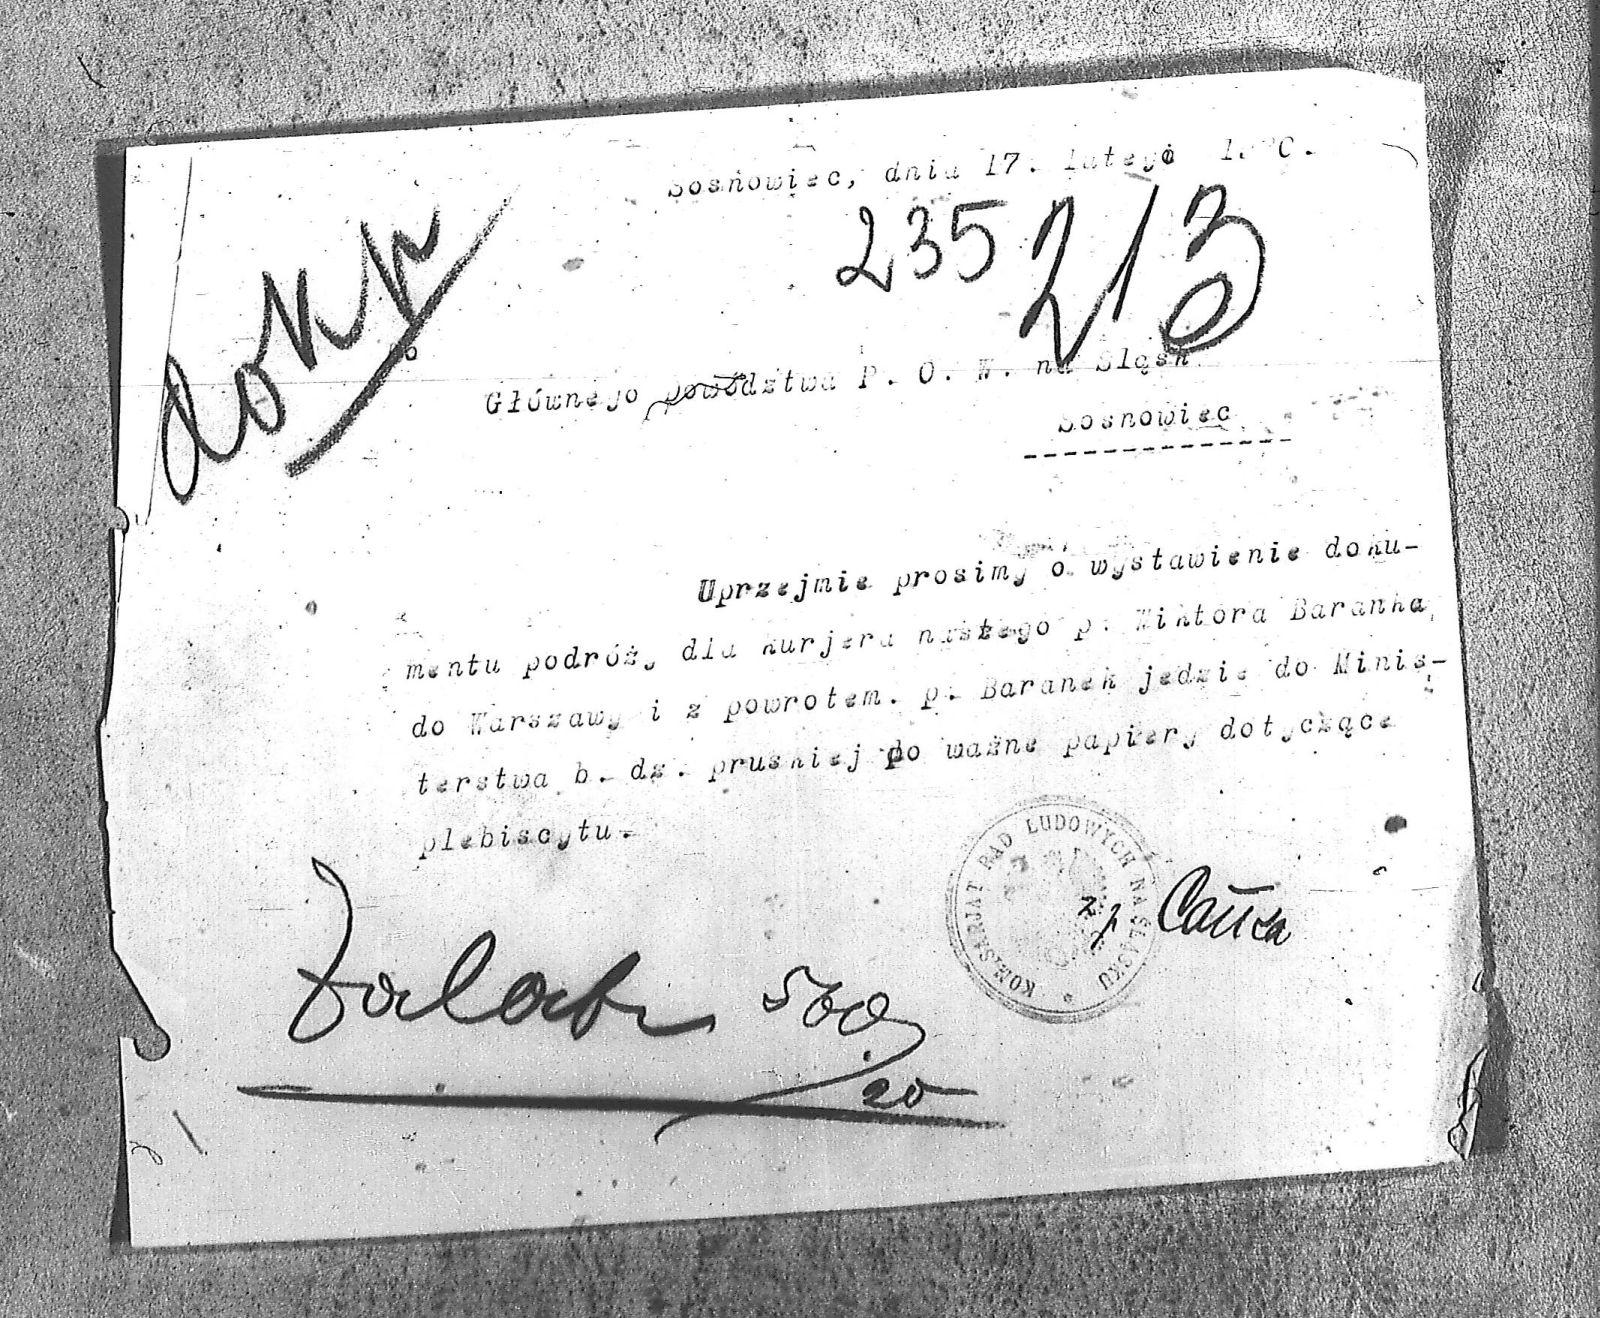 Sosnowiec, dnia 17. lutego 1920.
235 213
dokn
Do
Głównego powództwa P. O. W. na Śląsk
Sosnowiec
Uprzejmie prosimy o wystawienie doku-
mentu podróży dla kurjera naszego p. Wiktora Baranka
do Warszawy i z powrotem. p. Baranek jedzie do Minis-
terstwa b. dz. pruskiej po ważne papiery dotyczące
plebiscytu.
KOMISARJAT RAD LUDOWYCH NA ŚLĄSKU *
z p.
20